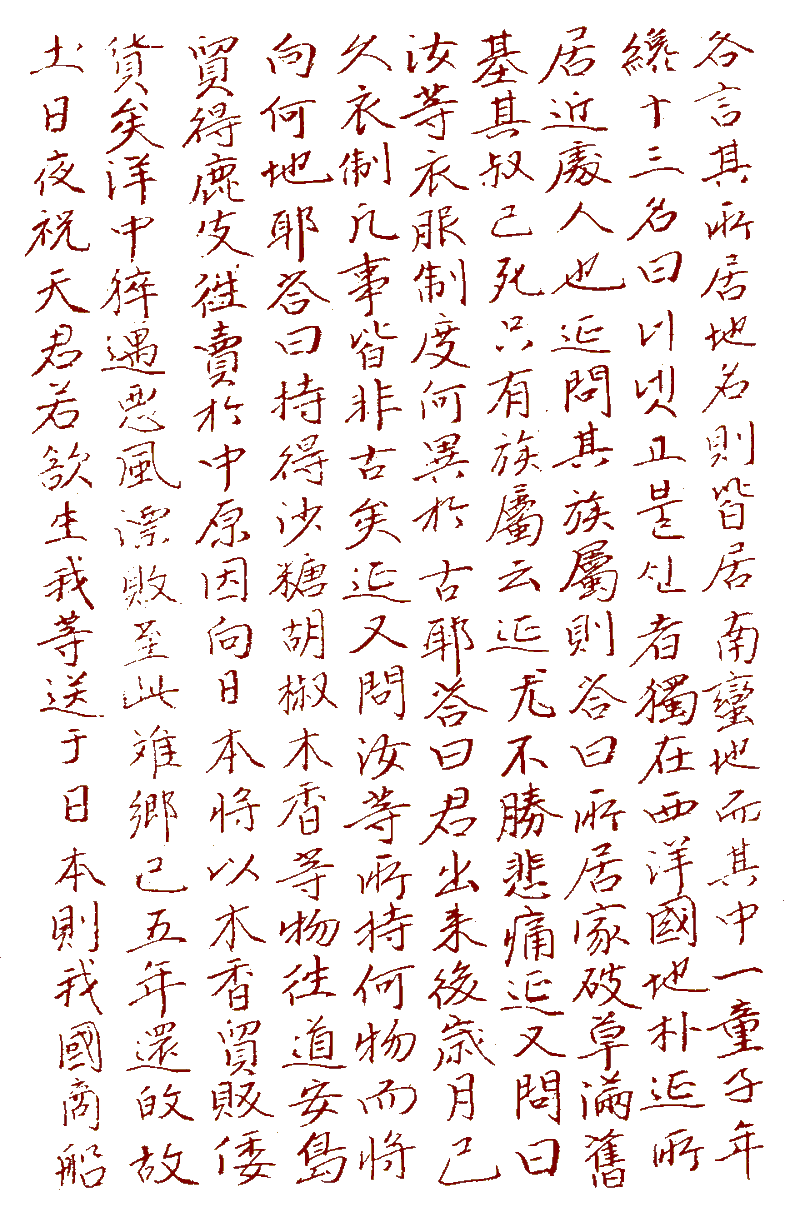 各言其所居地名則皆居南蠻地而其中一童子年
纔十三名曰디넷고불신者獨在西洋國地朴延所
居近處人也延問其族屬則答曰所居家破草滿舊
基其叔已死只有族屬云延尤不勝悲痛延又問曰
汝等衣服制度何異於古耶答曰君出來後歲月已
久衣制凡事皆非古矣延又問汝等所持何物而將
向何地耶答曰持得沙糖胡椒木香等物往道安島
貿得鹿皮徃賣於中原因向日本將以木香貿販倭
貨矣洋中猝遇悪風漂敗至此難鄉已五年還的故
土日夜祝天君若欲生我等送于日本則我國商船